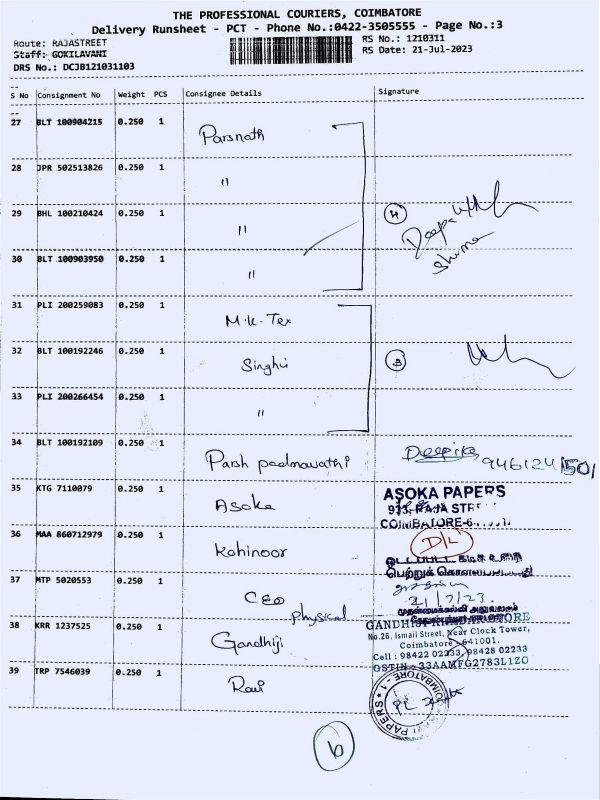 THE PROFESSIONAL COURIERS, COIMBATORE
Delivery Runsheet - PCT - Phone No.:0422-3505555 - Page No.:3
Route: RAJASTREET
RS No.: 1210311
Staff: GOKILAVANI
RS Date: 21-Jul-2023
DRS No.: DCJB121031103
S No Consignment No Weight PCS Consignee Details Signature
27 BLT 100904215 0.250 1 Parsnath
28 JPR 502513826 0.250 1 "
29 BHL 100210424 0.250 1 " 4
Deepa
Sharma
30 BLT 100903950 0.250 1 "
31 PLI 200259083 0.250 1 M.k-Tex
32 BLT 100192246 0.250 1 Singhvi 3
33 PLI 200266454 0.250 1 "
34 BLT 100192109 0.250 1 Parsh padmavathi Deepika 9461241501
35 KTG 7110079 0.250 1 Asoka
ASOKA PAPERS
933, RAJA STR
COIMBATORE-6
36 MAA 860712979 0.250 1 Kohinoor D/L
37 MTP 5020553 0.250 1 CEO physical
21/7/23.
38 KRR 1237525 0.250 1 Gandhiji
No.26, Ismail Street, Near Clock Tower,
Coimbatore - 641001.
Cell : 98422 02233, 98428 02233
GSTIN - 33AAMFG2783L1ZO
39 TRP 7546039 0.250 1 Ravi
PAPERS COIMBATORE - 1
6